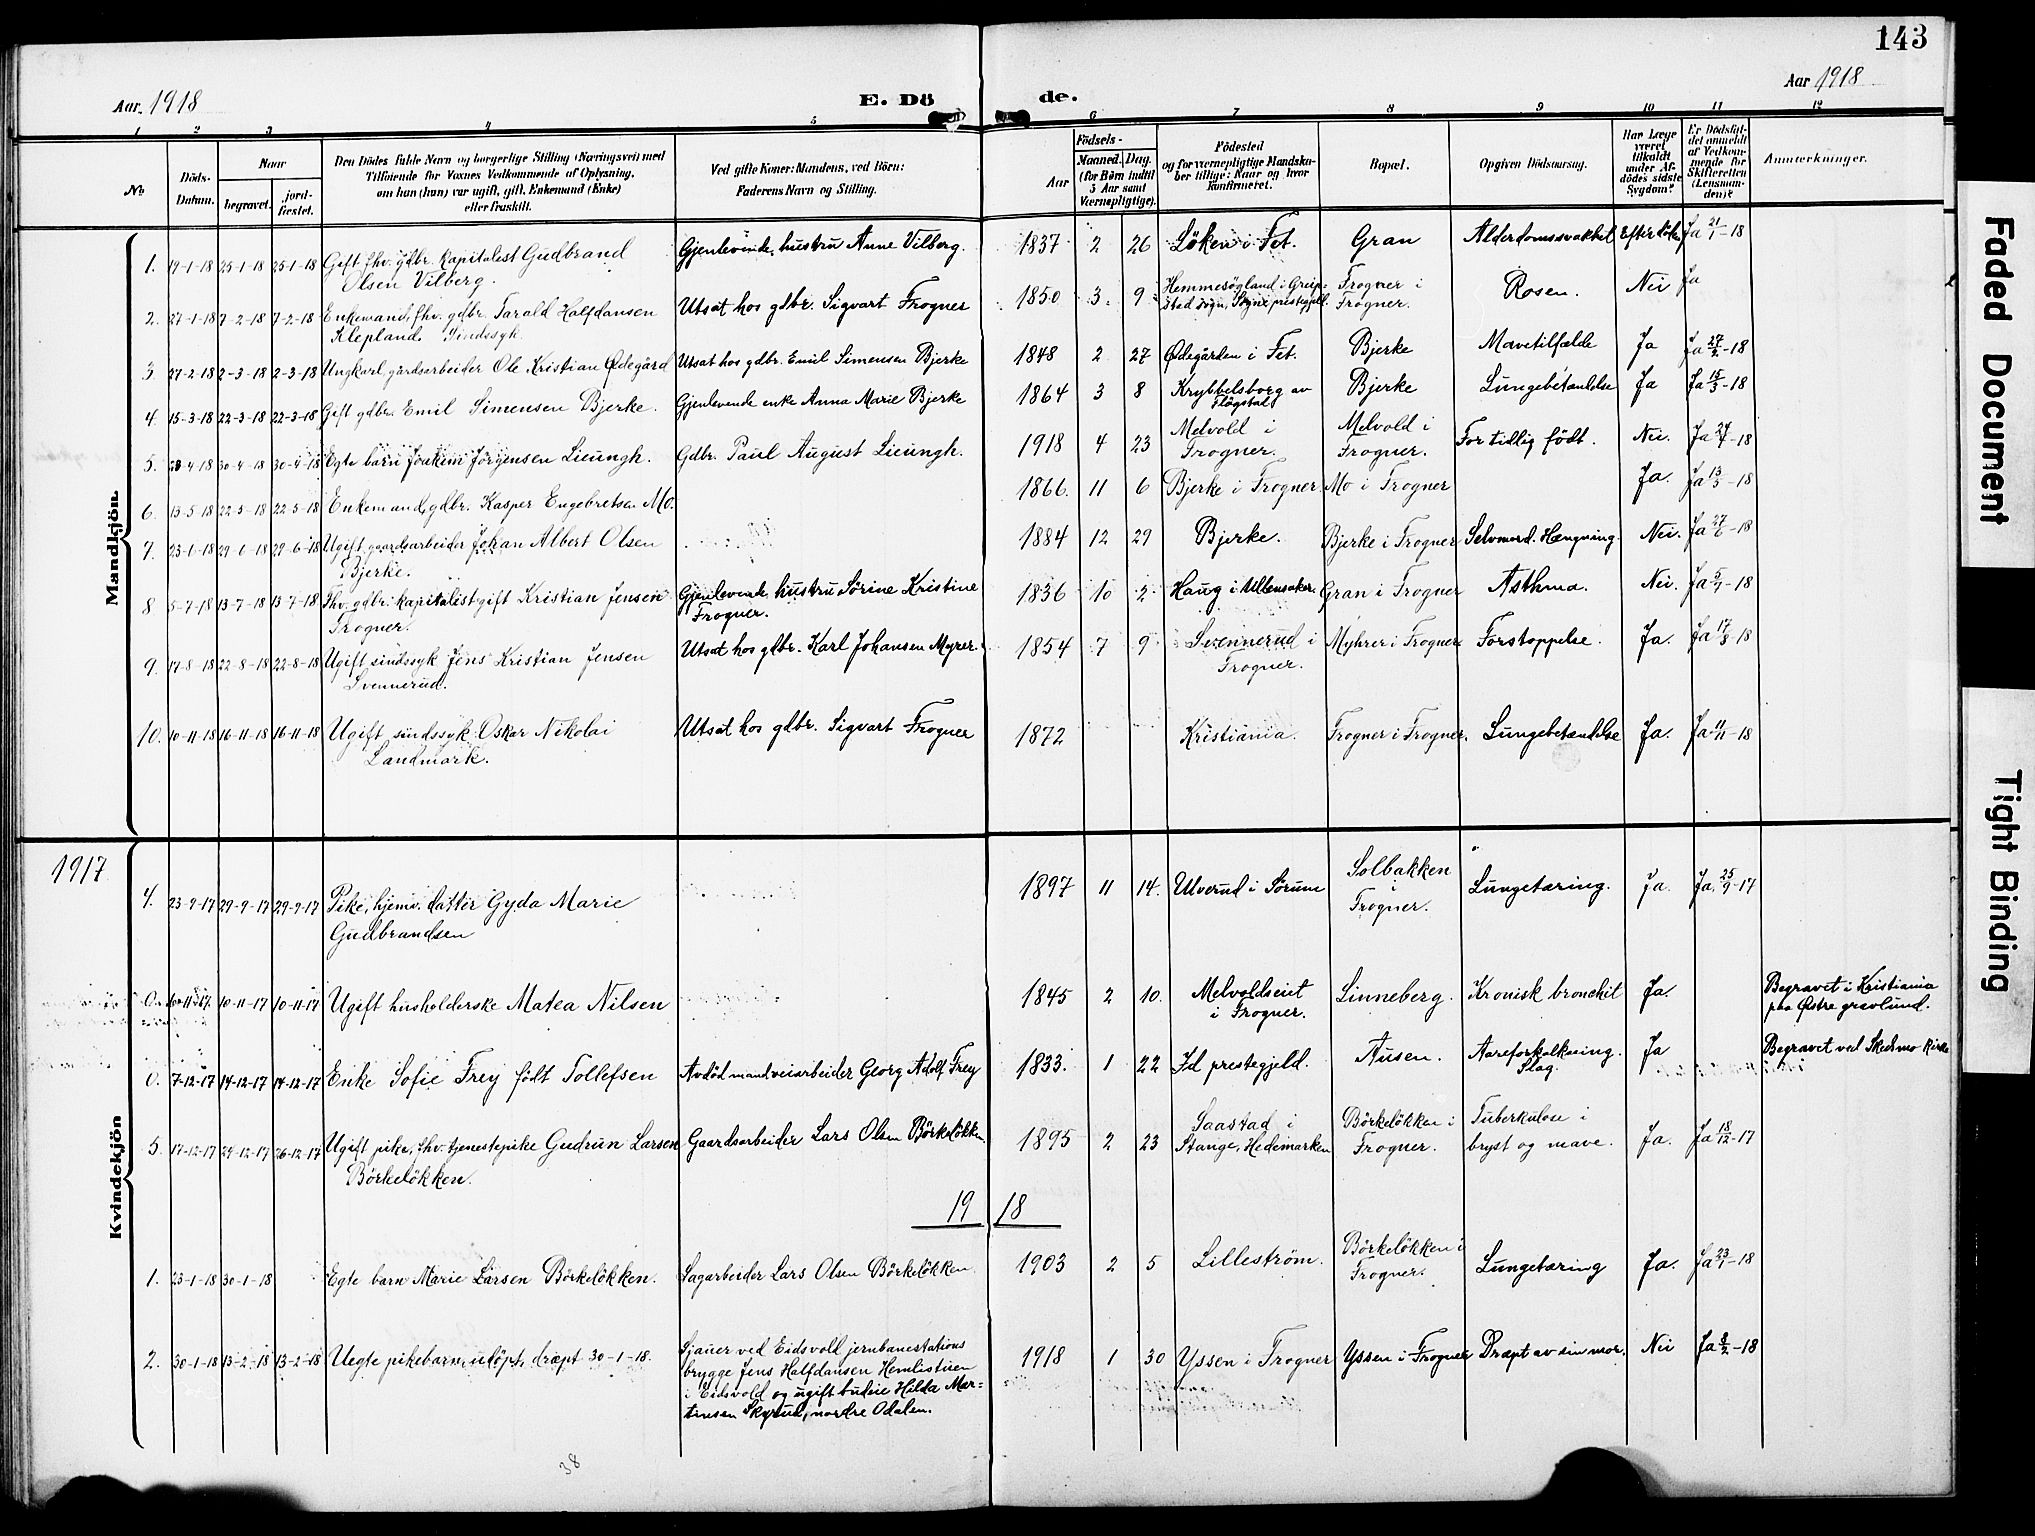 143
Aar 1918
E. Dö
de.
Aar 1918
1 2 3 4 5 6 7 8 9 10 11 12
No
Döds-
Datum.
Naar
begravet.
jord-
fæstet.
Den Dödes fulde Navn og borgerlige Stilling (Næringsvei) med
Tilföiende för Voxnes Vedkommende af Oplysning,
om han (hun) var ugift, gift, Enkemand (Enke)
eller fraskilt.
Ved gifte Koner: Mandens, ved Börn:
Faderens Navn og Stilling.
Födsels-
Aar
Maaned. Dag.
(for Börn indtil
5 Aar samt
Værnepligtige).
Födested
og for værnepligtige Mandska-
ber tillige: Naar og hvor
konfirmeret.
Bopæl.
Opgiven Dödsaarsag.
Har Læge
været
tilkaldt
under Af-
dödes sidste
Sygdom?
Er Dödsfal-
det anmeldt
af Vedkom-
mende for
Skifteretten
(Lensman-
den)?
Anmærkninger.
Mandkjön.
1. 17-1-18 25-1-18 25-1-18 Gift fhv. gdbr. kapitalist Gudbrand
Olsen Vilberg.
Gjenlevende hustru Anne Vilberg. 1837 2 26 Löken i Fet. Gran Alderdomssvakhet Ja 21/1-18
2. 27-1-18 7-2-18 7-2-18 Enkemand, fhv. gdbr. Tarald Halfdansen
Klepland. Sindssyk.
Utsat hos gdbr. Sigvart Frogner 1850 3. 9. Hemmesögland i Greip-
stad sogn, Sögne prestegjeld. Frogner i
Frogner. Rosen. Nei Ja
3. 27-2-18 2-3-18 2-3-18 Ungkarl, gårdsarbeider Ole Kristian Ødegård Utsat hos gdbr. Emil Simensen Bjerke 1848 2 27 Ødegården i Fet. Bjerke Mavetilfælde Ja Ja 27/2-18
4. 15-3-18 22-3-18 22-3-18 Gift gdbr. Emil Simensen Bjerke. Gjenlevende enke Anna Marie Bjerke 1864 3 8 Krybbelsborg av
Flögstad Bjerke Lungebetændelse Ja Ja 15/3-18
5. 23-4-18 30-4-18 30-4-18 Egte barn Joakim Jörgensen Lieungh. Gdbr. Paul August Lieungh. 1918 4 23 Melvold i
Frogner. Melvold i
Frogner. For tidlig födt. Nei. Ja 24/4-18
6. 13-5-18 22-5-18 22-5-18 Enkemand, gdbr. Kasper Engebretsen Mo. 1866. 11 6 Bjerke i Frogner Mo i Frogner Ja. Ja 13/5-18
7. 23-1-18 29-6-18 29-6-18 Ugift, gaardsarbeider Johan Albert Olsen
Bjerke.
1884 12 29 Bjerke. Bjerke i Frogner Selvmord. Hængning. Nei. Ja 27/6-18
8 5-7-18 13-7-18 13-7-18 Fhv. gdbr. kapitalist gift Kristian Jensen
Frogner.
Gjenlevende hustru Sörine Kristine
Frogner.
1836 10 2 Haug i Ullensaker. Gran i Frogner Asthma. Nei. Ja 5/7-18
9. 17-8-18 22-8-18 22-8-18 Ugift sindssyk Jens Kristian Jensen
Svennerud.
Utsat hos gdbr. Karl Johansen Myrer. 1854 7 9 Svennerud i
Frogner. Myhrer i Frogner Forstoppelse. Ja. Ja 17/8-18
10. 10-11-18 16-11-18 16-11-18 Ugift, sindssyk Oskar Nikolai
Landmark.
Utsat hos gdbr. Sigvart Frogner 1872 Kristiania. Frogner i Frogner. Lungebetændelse Ja. Ja 11/11-18
1917
Kvindekjön
4. 23-9-17 29-9-17 29-9-17 Pike, hjemv. datter Gyda Marie
Gudbrandsen
1897 11 14. Ulverud i Sörum Solbakken
i
Frogner. Lungetæring. Ja. Ja. 25/9-17
0. 10-11-17 10-11-17 Ugift husholderske Matea Nilsen 1845 2 10. Melvoldseiet
i Frogner. Linneberg. Kronisk bronchit Ja. Begravet i Kristiania
paa Østre gravlund.
0. 7-12-17 14-12-17 14-12-17 Enke Sofie Frey födt Tollefsen Avdöd mand veiarbeider Georg Adolf Frey 1833. 1 22 Id prestegjeld. Ausen. Aareforkalkning.
Slag. Ja Begravet ved Skedsmo kirke
5. 17-12-17 24-12-17 26-12-17 Ugift pike, fhv. tjenestepike Gudrun Larsen
Börkelökken.
Gaardsarbeider Lars Olsen Börkelökken 1895 2 23 Saastad i
Stange, Hedemarken Börkelökken i
Frogner. Tuberkulose i
bryst og mave. Ja. Ja 18/12-17
19 18
1. 23-1-18 30-1-18 Egte barn Marie Larsen Börkelökken. Sagarbeider Lars Olsen Börkelökken 1903 2 5 Lilleström. Börkelökken i
Frogner. Lungetæring Ja. Ja 23/1-18
2. 30-1-18 13-2-18 13-2-18 Uegte pikebarn, udöpt, dræpt 30-1-18. Sjauer ved Eidsvoll jernbanestations
brygge Jens Halfdansen Hemlistuen
i Eidsvold og ugift budeie Hilda Mar-
tinsen Skyrud, nordre Odalen.
1918 1 30 Yssen i Frogner Yssen i Frogner Dræpt av sin mor. Nei Ja 8/2-18
38
Faded Document
Tight Binding